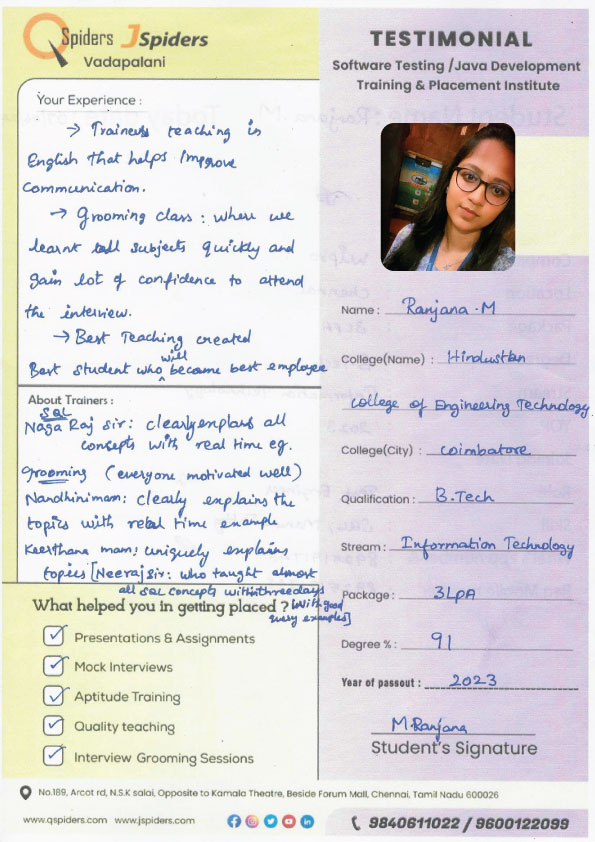 QSpiders JSpiders
Vadapalani
TESTIMONIAL
Software Testing /Java Development
Training & Placement Institute
Your Experience :
→ Trainers teaching is
English that helps improve
communication.
→ Grooming class : where we
learnt all subjects quickly and
gain lot of confidence to attend
the interview.
→ Best Teaching created
Best student who will become best employee
About Trainers :
SQL
Naga Raj sir : clearly explans all
concepts with real time eg.
Grooming (everyone motivated well)
Nandhini mam : clearly explains the
topics with real time example
Keerthana mam : uniquely explains
topics [Neeraj sir : who taught almost
all SQL concepts within three days
[with good
query examples]
Name : Ranjana . M
College(Name) : Hindusthan
college of Engineering Technology
College(City) : coimbatore
Qualification : B.Tech
Stream : Information Technology
Package : 3LPA
Degree % : 91
Year of passout : 2023
M.Ranjana
Student's Signature
What helped you in getting placed ?
Presentations & Assignments
Mock Interviews
Aptitude Training
Quality teaching
Interview Grooming Sessions
No.189, Arcot rd, N.S.K salai, Opposite to Kamala Theatre, Beside Forum Mall, Chennai, Tamil Nadu 600026
www.qspiders.com www.jspiders.com
9840611022 / 9600122099